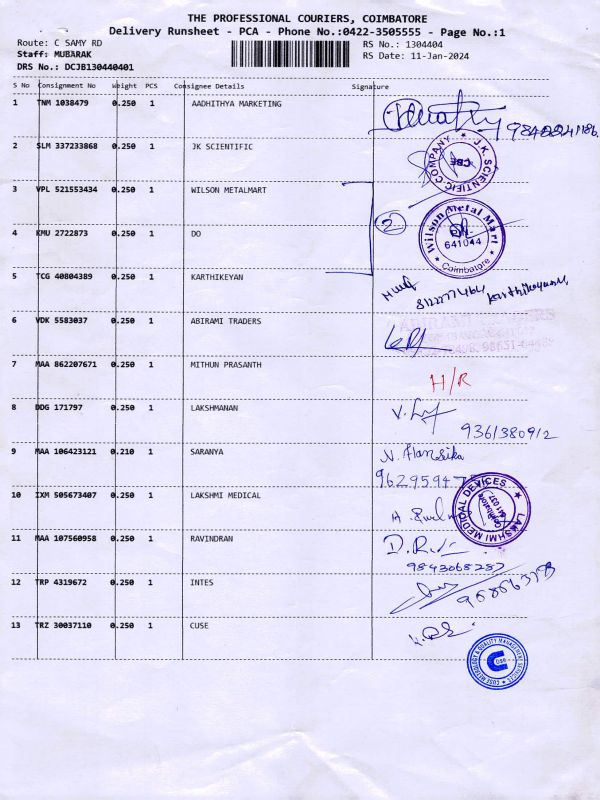 THE PROFESSIONAL COURIERS, COIMBATORE
Delivery Runsheet - PCA - Phone No.:0422-3505555 - Page No.:1
Route: C SAMY RD RS No.: 1304404
Staff: MUBARAK RS Date: 11-Jan-2024
DRS No.: DCJB130440401
S No Consignment No Weight PCS Consignee Details Signature
1 TNM 1038479 0.250 1 AADHITHYA MARKETING
2 SLM 337233868 0.250 1 JK SCIENTIFIC
J.K. SCIENTIFIC COMPANY CBE
3 VPL 521553434 0.250 1 WILSON METALMART
2
Wilson Metal Mart
641044
Coimbatore
4 KMU 2722873 0.250 1 DO
5 TCG 40804389 0.250 1 KARTHIKEYAN
6 VDK 5583037 0.250 1 ABIRAMI TRADERS
7 MAA 862207671 0.250 1 MITHUN PRASANTH
H/R
8 DDG 171797 0.250 1 LAKSHMANAN
9361380912
9 MAA 106423121 0.210 1 SARANYA
N. Hansika
10 IXM 505673407 0.250 1 LAKSHMI MEDICAL
LAKSHMI MEDICAL DEVICES
11 MAA 107560958 0.250 1 RAVINDRAN
9843068287
12 TRP 4319672 0.250 1 INTES
13 TRZ 30037110 0.250 1 CUSE